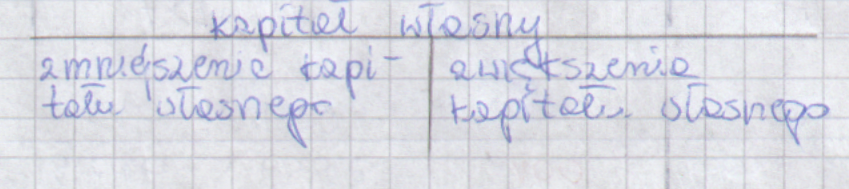 kapitał własny
zmniejszenie kapi-
tału własnego
zwiększenie
kapitału własnego